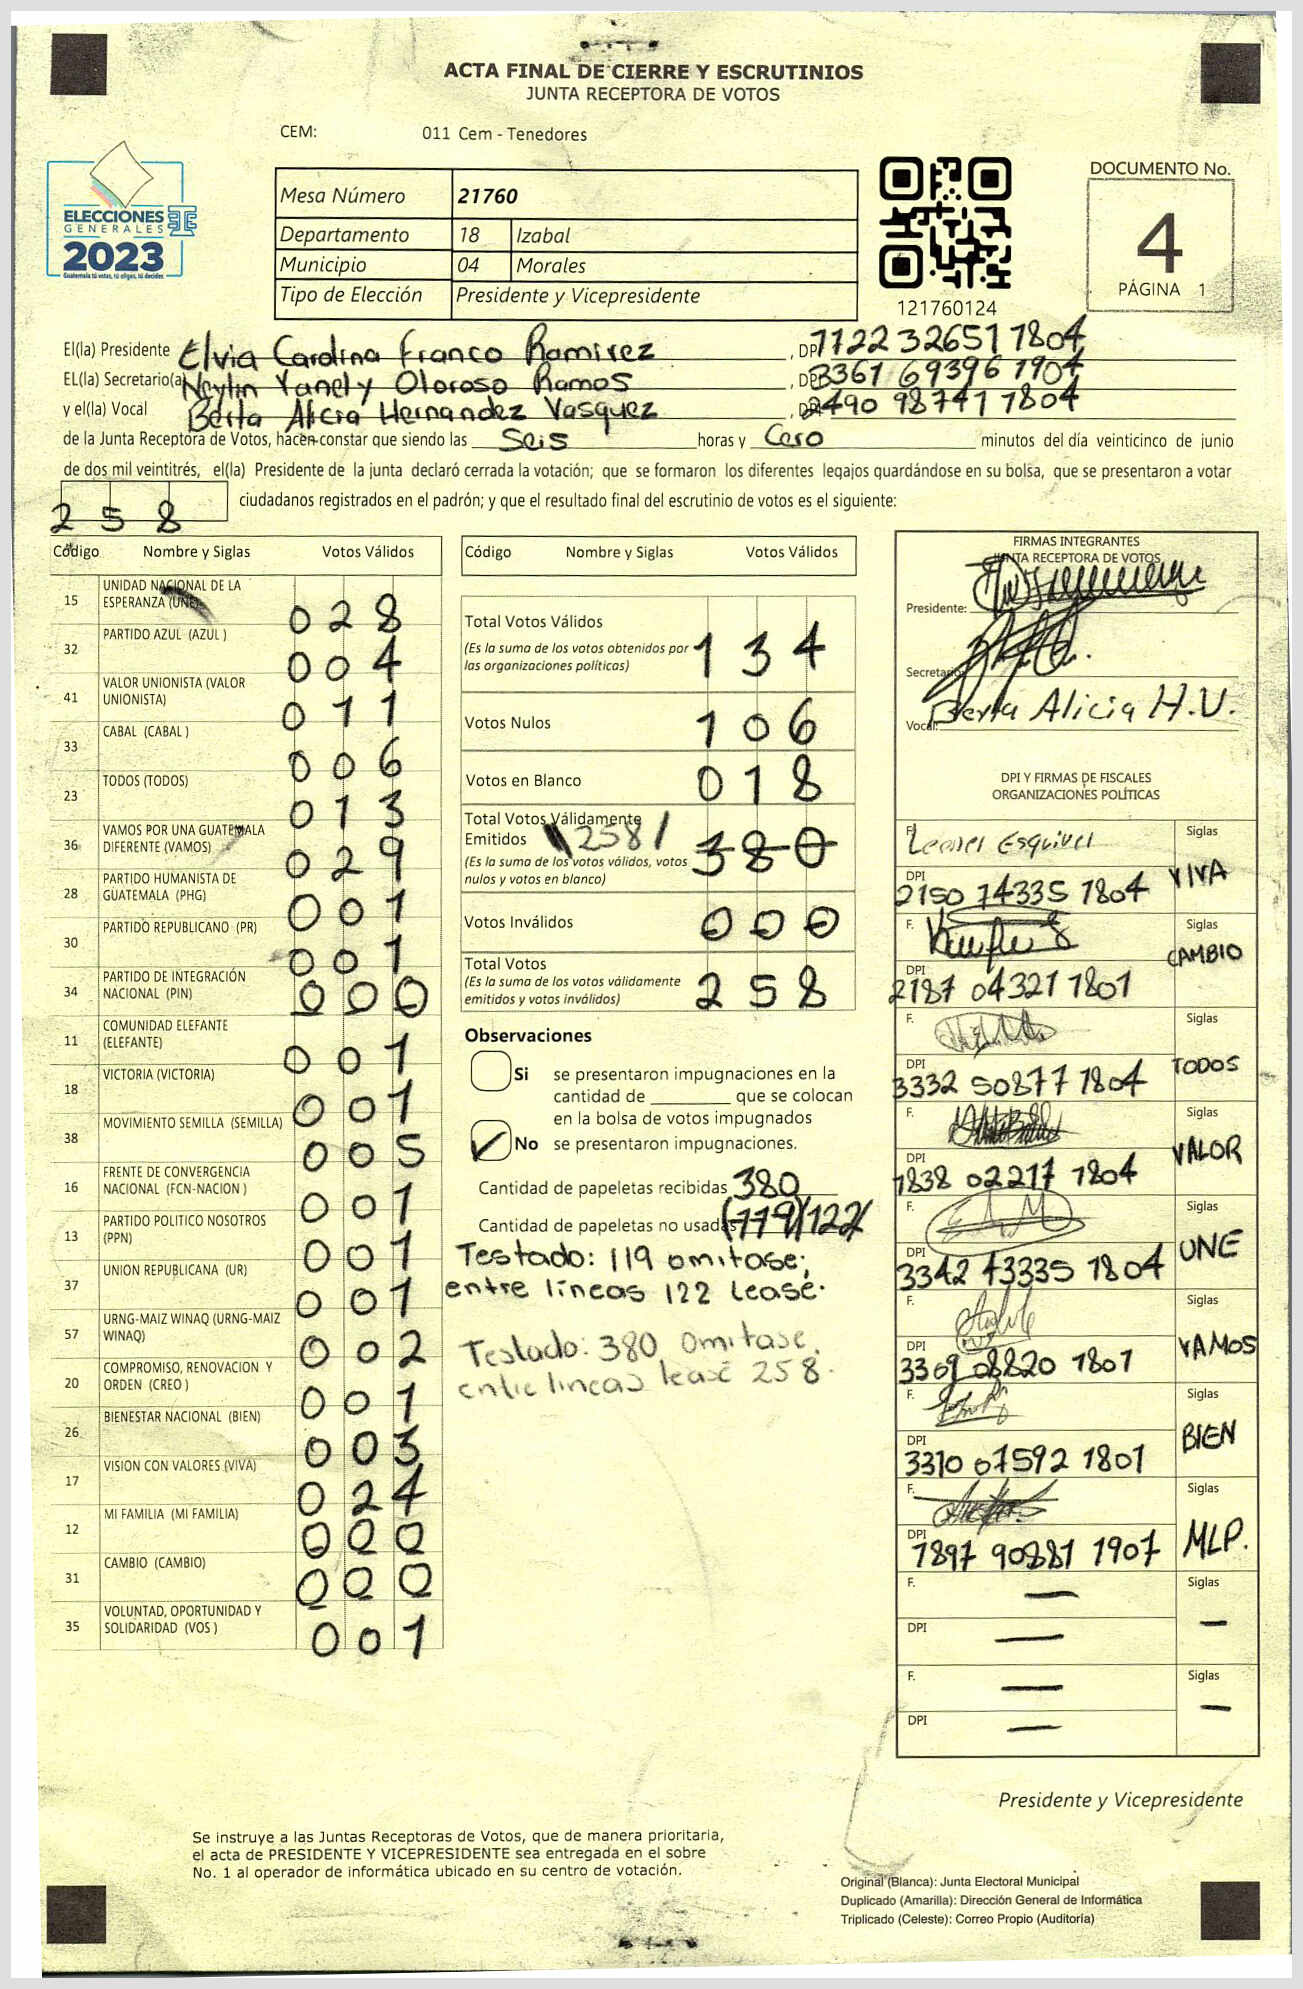 ACTA FINAL DE CIERRE Y ESCRUTINIOS
JUNTA RECEPTORA DE VOTOS
CEM: 011 Cem - Tenedores
ELECCIONES
GENERALES
2023
Guatemala tú votas, tú eliges, tú decides
Mesa Número 21760
Departamento 18 Izabal
Municipio 04 Morales
Tipo de Elección Presidente y Vicepresidente
121760124
DOCUMENTO No.
4
PÁGINA 1
El(la) Presidente Elvia Carolina Franco Ramirez, DPI 7122 32651 1804
EL(la) Secretario(a) Neylin Yanely Oloroso Ramos, DPI 3361 69396 1904
y el(la) Vocal Berta Alicia Hernandez Vasquez, DPI 2490 98741 1804
de la Junta Receptora de Votos, hacen constar que siendo las Seis horas y Cero minutos del día veinticinco de junio
de dos mil veintitrés, el(la) Presidente de la junta declaró cerrada la votación; que se formaron los diferentes legajos quardándose en su bolsa, que se presentaron a votar
258 ciudadanos registrados en el padrón; y que el resultado final del escrutinio de votos es el siguiente:
Código Nombre y Siglas Votos Válidos
15 UNIDAD NACIONAL DE LA
ESPERANZA (UNE) 028
32 PARTIDO AZUL (AZUL ) 004
41 VALOR UNIONISTA (VALOR
UNIONISTA) 011
33 CABAL (CABAL ) 006
23 TODOS (TODOS) 013
36 VAMOS POR UNA GUATEMALA
DIFERENTE (VAMOS) 029
28 PARTIDO HUMANISTA DE
GUATEMALA (PHG) 001
30 PARTIDO REPUBLICANO (PR) 001
34 PARTIDO DE INTEGRACIÓN
NACIONAL (PIN) 000
11 COMUNIDAD ELEFANTE
(ELEFANTE) 001
18 VICTORIA (VICTORIA) 001
38 MOVIMIENTO SEMILLA (SEMILLA) 005
16 FRENTE DE CONVERGENCIA
NACIONAL (FCN-NACION ) 001
13 PARTIDO POLITICO NOSOTROS
(PPN) 001
37 UNION REPUBLICANA (UR) 001
57 URNG-MAIZ WINAQ (URNG-MAIZ
WINAQ) 002
20 COMPROMISO, RENOVACION Y
ORDEN (CREO ) 001
26 BIENESTAR NACIONAL (BIEN) 003
17 VISION CON VALORES (VIVA) 024
12 MI FAMILIA (MI FAMILIA) 000
31 CAMBIO (CAMBIO) 000
35 VOLUNTAD, OPORTUNIDAD Y
SOLIDARIDAD (VOS ) 001
Código Nombre y Siglas Votos Válidos
Total Votos Válidos
(Es la suma de los votos obtenidos por
las organizaciones políticas) 134
Votos Nulos 106
Votos en Blanco 018
Total Votos Válidamente
Emitidos 258 380
(Es la suma de los votos válidos, votos
nulos y votos en blanco)
Votos Inválidos 000
Total Votos
(Es la suma de los votos válidamente
emitidos y votos inválidos) 258
Observaciones
Si se presentaron impugnaciones en la
cantidad de ________ que se colocan
en la bolsa de votos impugnados
No se presentaron impugnaciones.
Cantidad de papeletas recibidas 380
Cantidad de papeletas no usadas (119)(122)
Testado: 119 omitase;
entre líneas 122 Lease.
Testado: 380 omitase.
entre lineas lease 258.
FIRMAS INTEGRANTES
JUNTA RECEPTORA DE VOTOS
Presidente:
Secretario:
Vocal: Berta Alicia H.V.
DPI Y FIRMAS DE FISCALES
ORGANIZACIONES POLÍTICAS
F. Leonel Esquivel Siglas
DPI 2150 74335 1804 VIVA
F. Siglas
DPI 2187 04321 1801 CAMBIO
F. Siglas
DPI 3332 50877 1804 TODOS
F. Siglas
DPI 1838 02217 1804 VALOR
F. Siglas
DPI 3342 43335 1804 UNE
F. Siglas
DPI 3369 08820 1801 VAMOS
F. Siglas
DPI 3310 07592 1801 BIEN
F. Siglas
DPI 1897 90881 1907 MLP.
F. — Siglas
DPI — —
F. — Siglas
DPI — —
Presidente y Vicepresidente
Se instruye a las Juntas Receptoras de Votos, que de manera prioritaria,
el acta de PRESIDENTE Y VICEPRESIDENTE sea entregada en el sobre
No. 1 al operador de informática ubicado en su centro de votación.
Original (Blanca): Junta Electoral Municipal
Duplicado (Amarilla): Dirección General de Informática
Triplicado (Celeste): Correo Propio (Auditoría)